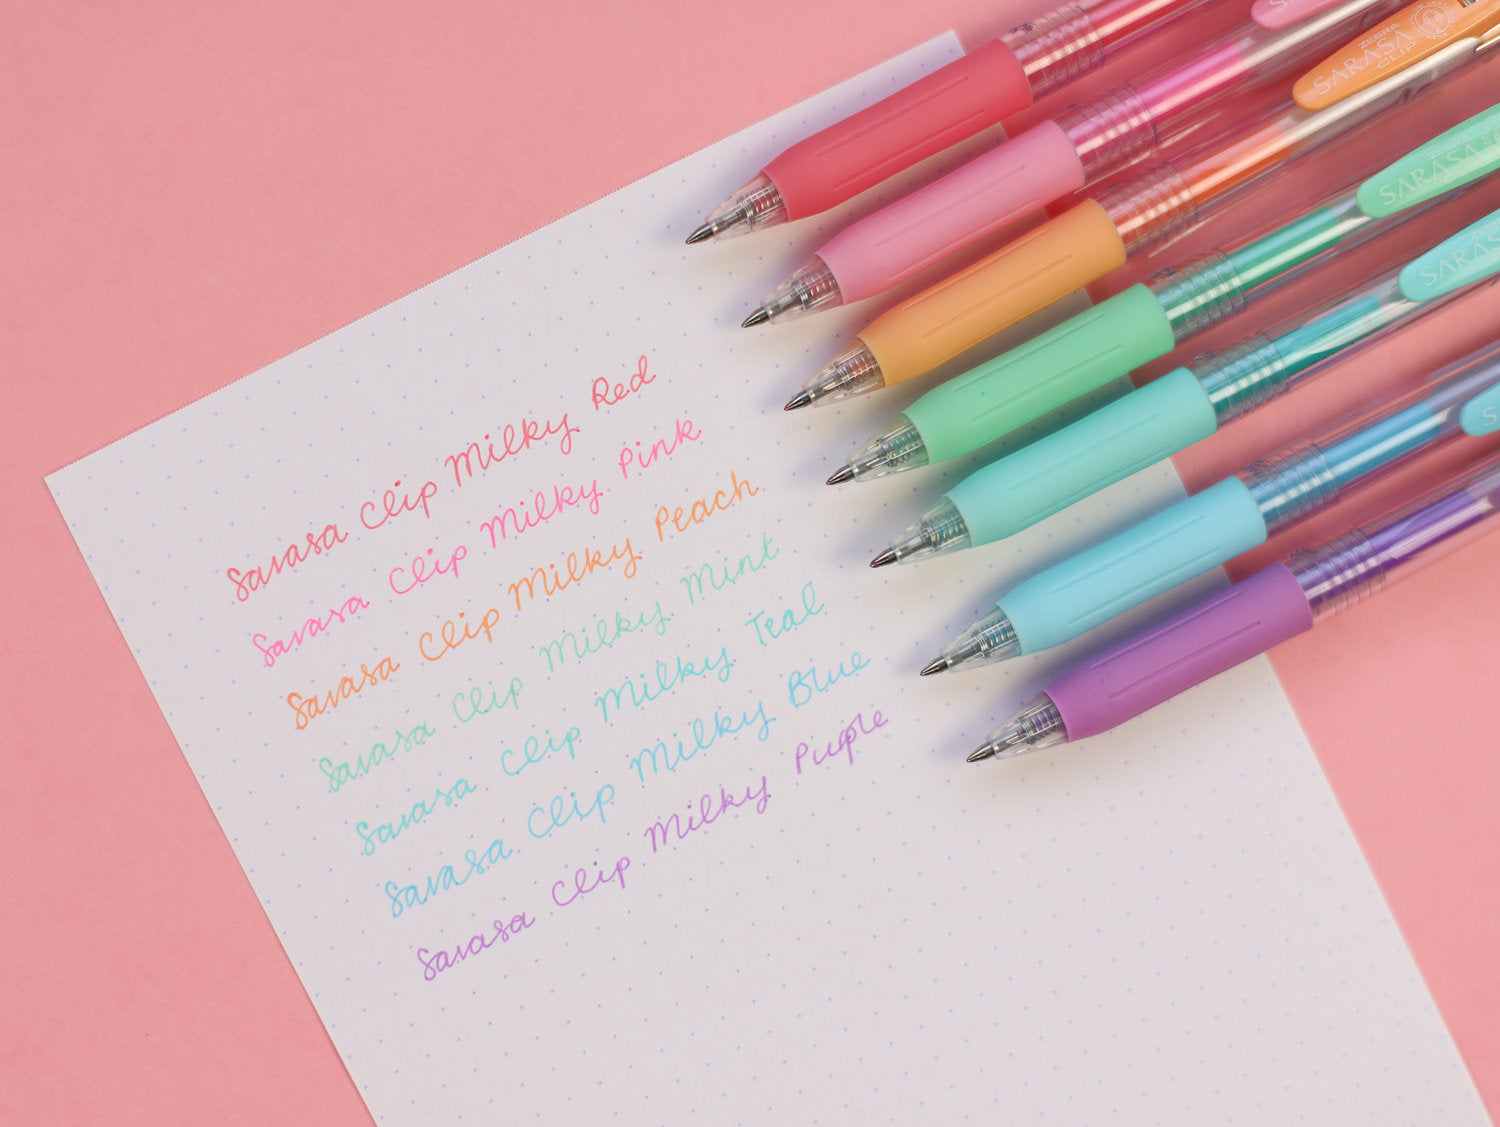 Sarasa Clip Milky Red
Sarasa Clip Milky Pink
Sarasa Clip Milky Peach
Sarasa Clip Milky Mint
Sarasa Clip Milky Teal
Sarasa Clip Milky Blue
Sarasa Clip Milky Purple
ZEBRA
SARASA
CLIP
SARASA
SARASA